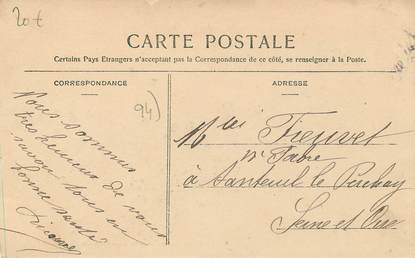 20 €
CARTE POSTALE
Certains Pays Etrangers n'acceptant pas la Correspondance de ce côté, se renseigner à la Poste.
CORRESPONDANCE
ADRESSE
94)
Nous sommes
très heureux de vous
savoir tous en
bonne santé
Mlle Fieuvet
à Santeuil le Perchay
Seine et Oise